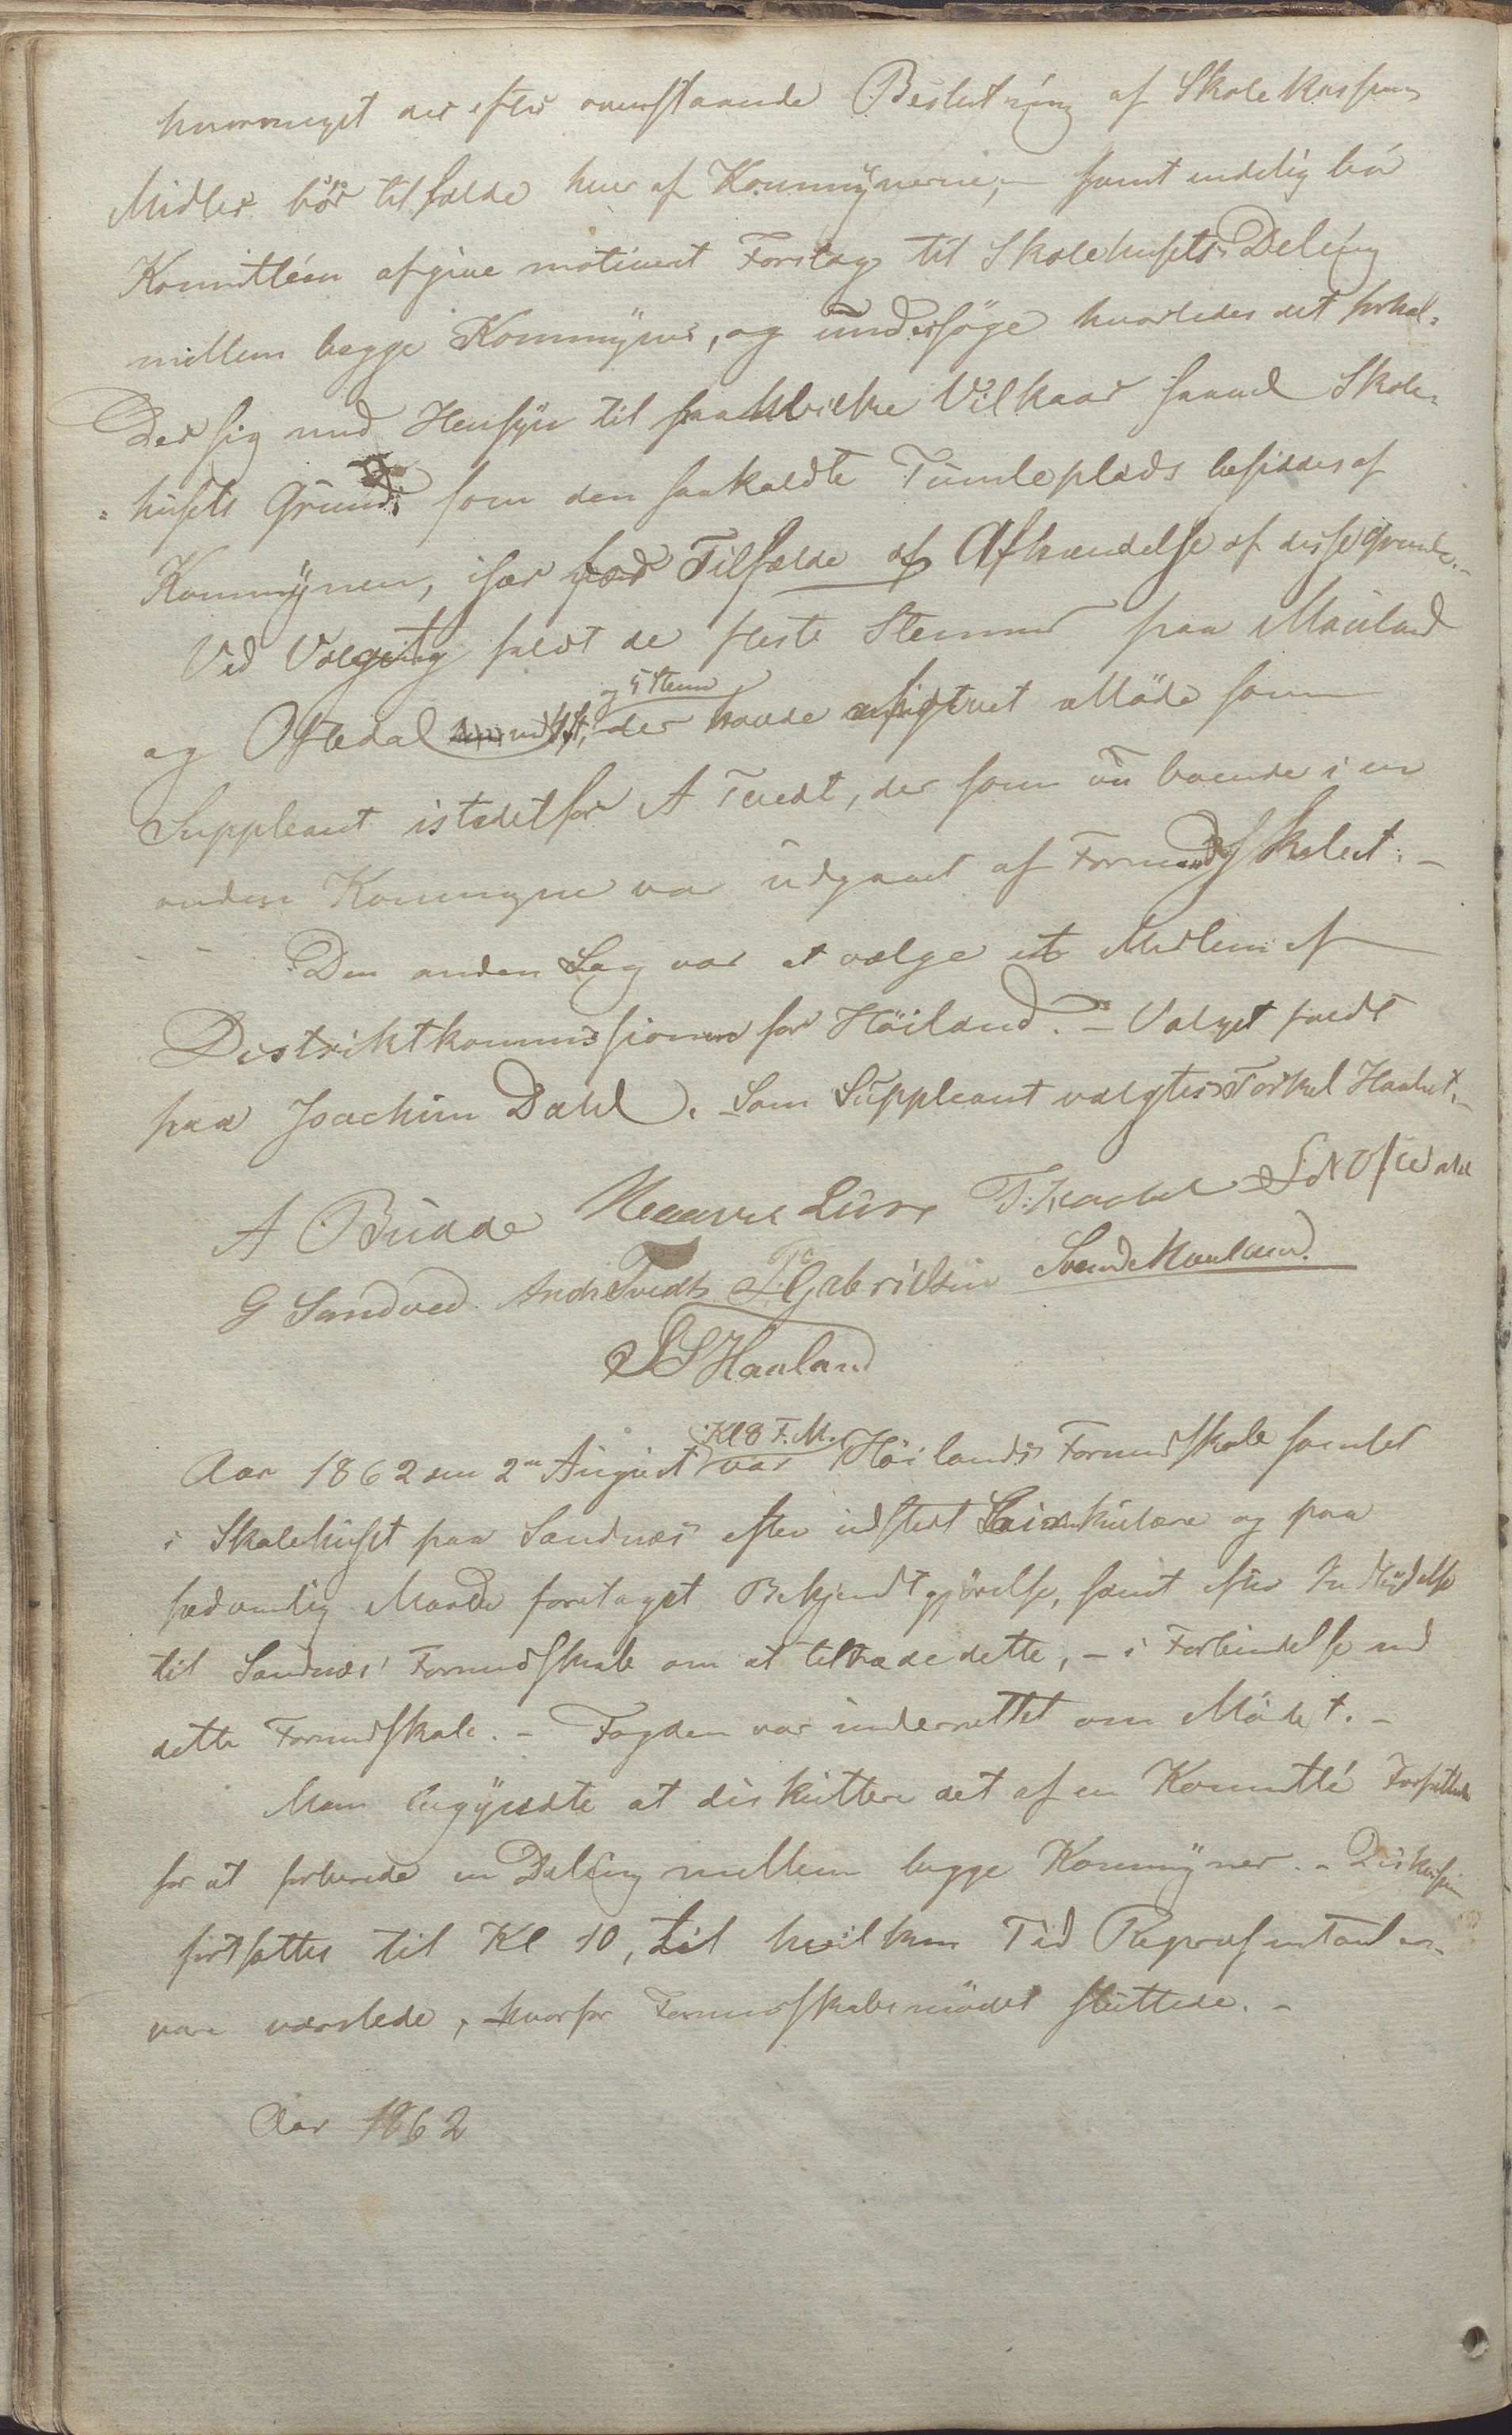 hvormeget der efter ovenstaaende Beslutning af Skolekassens
Midler bör tilfalde hver af Kommynerne, samt endelig bör
Komittéen afgive motiveret Forslag til Skolehusets Deling
mellem begge Kommyner, og undersöge hvorledes det forhol-
der sig med Hensyn til paa hvilke Vilkaar saavel Skole-
husets Grund som den saakaldte Tumleplads besiddes af
Kommynen, især ved Tilfælde af Afhændelse af disse Grunde.-
Ved Valget faldt de fleste Stemmer paa Mauland
og Oftedal der havde Möde som
og 5 Stemm
Suppleant istedetfor A Tvedt, der som nu boende i en
anden Kommyne var udgaaet af Formandskabet. -
Den anden Sag var at vælge et Medlem af
Distriktkommissionen for Höiland. - Valget faldt
paa Joachim Dahl. Som Suppleant valgtes Torkel Haabet.-
A Budde Lura T. Haabet Oftedal
G Sandved Andr Tvedt T. Gabrielsen Svend Mauland.
S S Haaland
Aar 1862 den 2en August Kl 8 F.M. var Höilands Formandskab samlet
i Skolehuset paa Sandnæs efter udstedt Cirkulære og paa
sædvanlig Maade foretaget Bekjendtgjörelse, samt efter Indbydelse
til Sandnæs' Formandskab om at tiltræde dette, - i Forbindelse med
dette Formandskab. - Fogden var underrettet om Mödet. -
Man begyndte at diskuttere det af en Komitté Forfattede
for at forberede en Deling mellem begge Kommyner. - Diskussion
fortsattes til Kl 10, til hvilken Tid Repræsentanter-
vare varslede, hvorfor Formandskabsmödet sluttede. -
Aar 1862